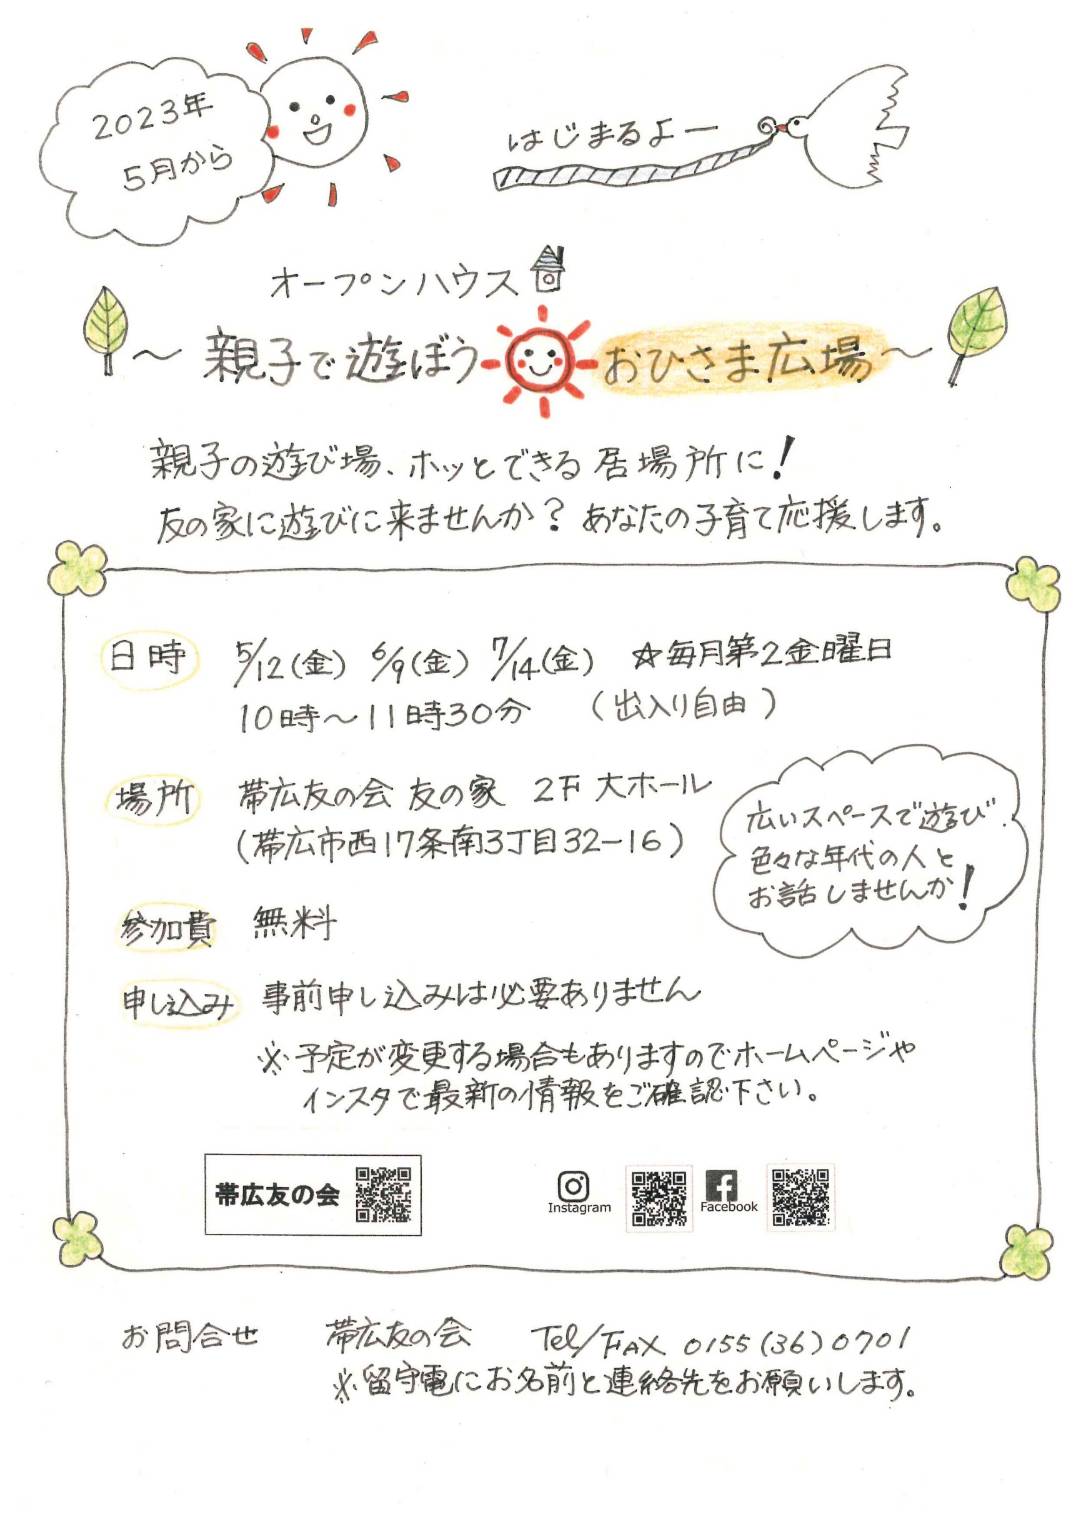 2023年
5月から
はじまるよー
オープンハウス
〜親子で遊ぼう おひさま広場〜
親子の遊び場、ホッとできる居場所に!
友の家に遊びに来ませんか?あなたの子育て応援します。
日時 5/12(金) 6/9(金) 7/14(金) ☆毎月第2金曜日
10時〜11時30分 (出入り自由)
場所 帯広友の会 友の家 2F 大ホール
(帯広市西17条南3丁目32-16)
広いスペースで遊び、
色々な年代の人と
お話しませんか!
参加費 無料
申し込み 事前申し込みは必要ありません
※予定が変更する場合もありますのでホームページや
インスタで最新の情報をご確認下さい。
帯広友の会
Instagram
Facebook
お問合せ 帯広友の会 Tel/FAX 0155(36)0701
※留守電にお名前と連絡先をお願いします。